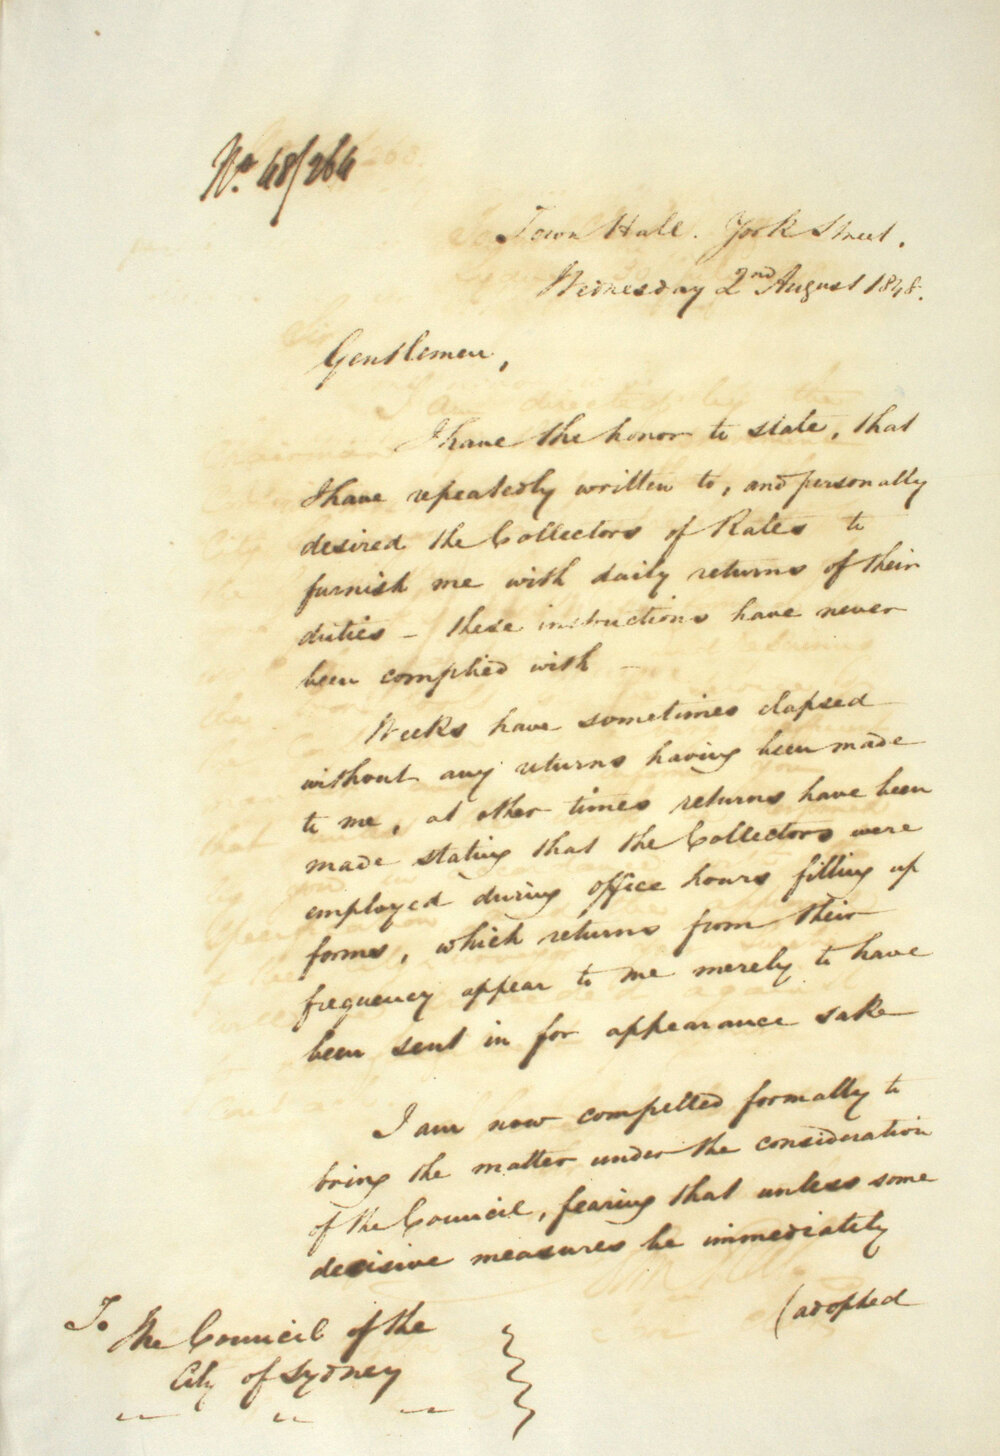 No. 48/264
Town Hall. York Street.
Wednesday 2nd August 1848.
Gentlemen,
I have the honor to state, that
I have repeatedly written to, and personally
desired the Collectors of Rates to
furnish me with daily returns of their
duties – these instructions have never
been complied with –
Weeks have sometimes elapsed
without any returns having been made
to me, at other times returns have been
made stating that the Collectors were
employed during office hours filling up
forms, which returns from their
frequency appear to me merely to have
been sent in for appearance sake
I am now compelled formally to
bring the matter under the consideration
of the Council, fearing that unless some
decisive measures be immediately
(adopted
To
The Council of the
City of Sydney